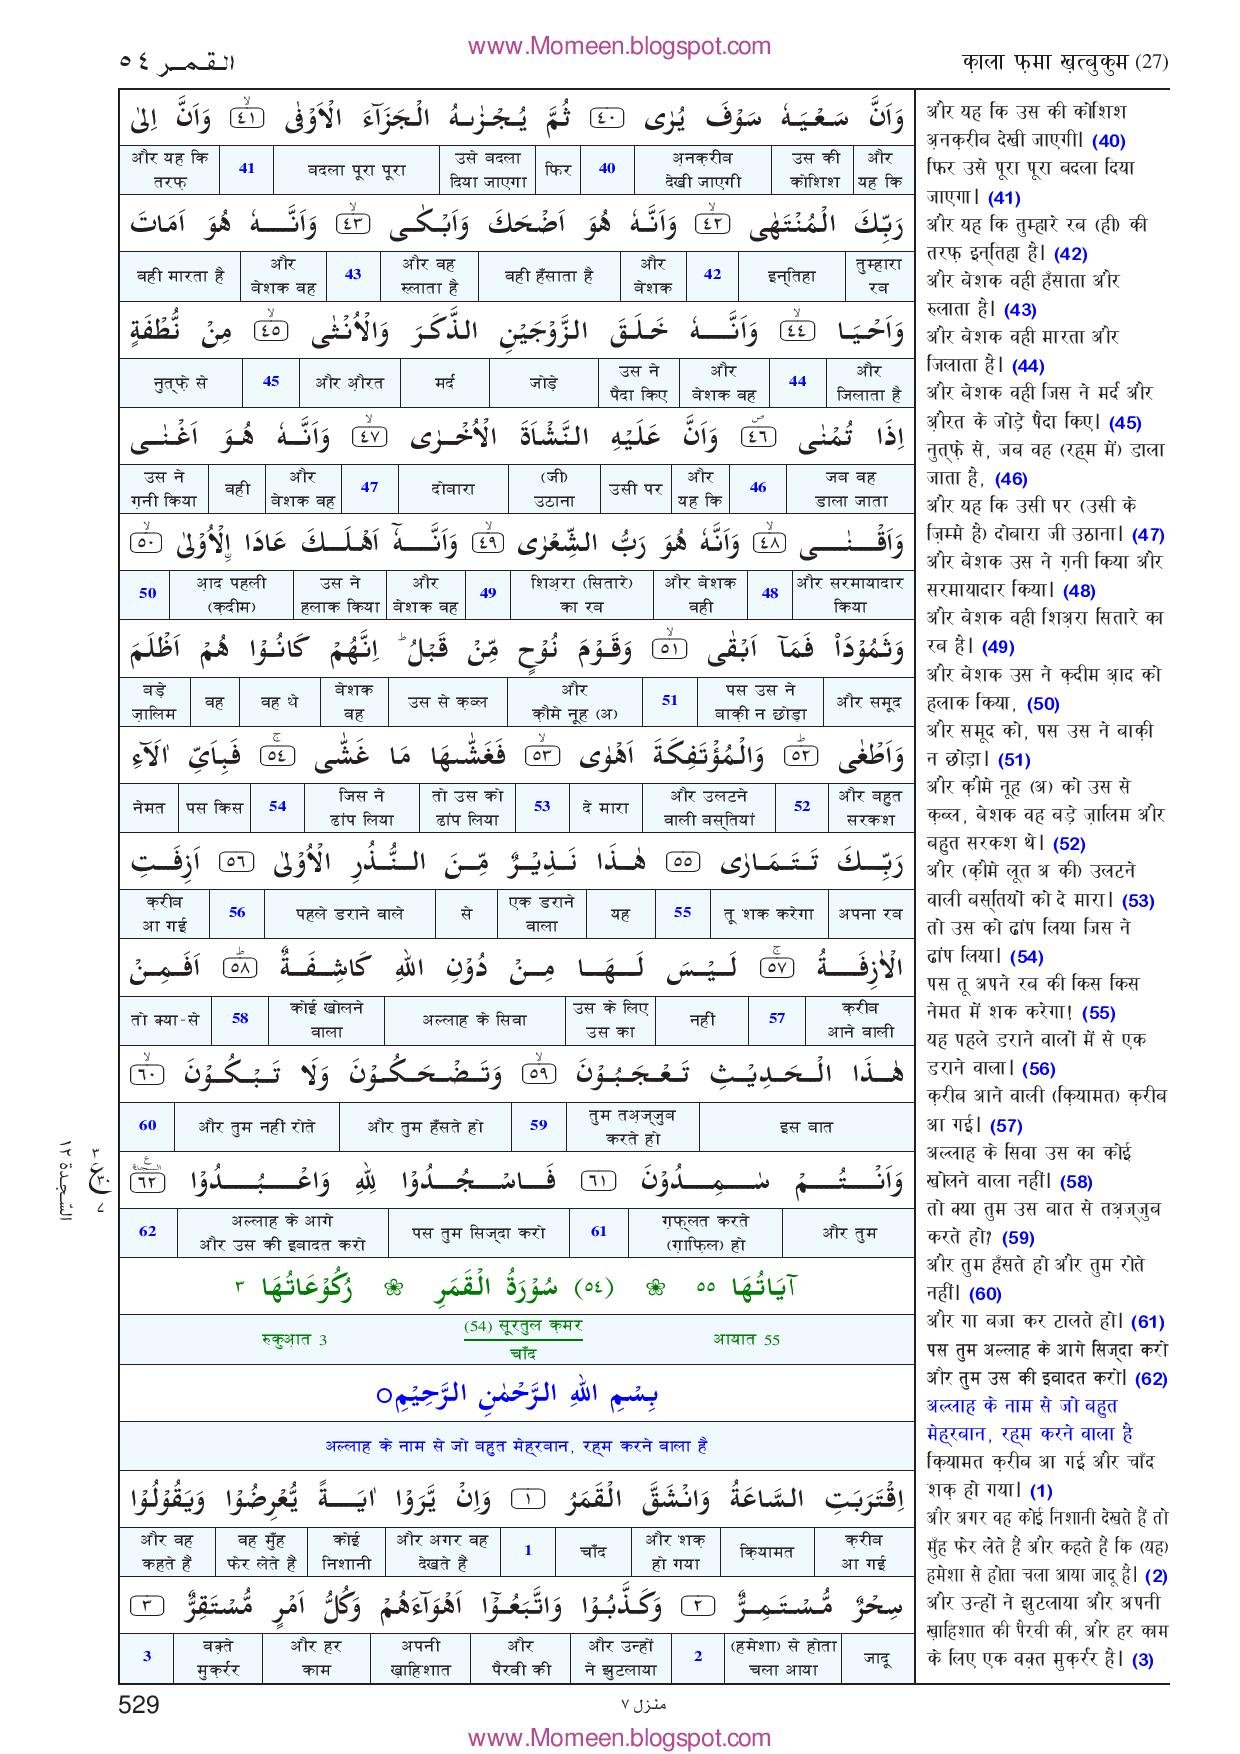 www.Momeen.blogspot.com
القمر ٥٤
क़ाला फ़मा ख़त्बुकुम (27)
وَاَنَّ سَعْيَهٗ سَوْفَ يُرٰى ۝٤٠ ثُمَّ يُجْزٰىهُ الْجَزَآءَ الْاَوْفٰى ۝٤١ وَاَنَّ اِلٰى
और यह कि | उस की कोशिश | अ़नक़रीब देखी जाएगी | 40 | फिर | उसे बदला दिया जाएगा | बदला पूरा पूरा | 41 | और यह कि तरफ़
رَبِّكَ الْمُنْتَهٰى ۝٤٢ وَاَنَّهٗ هُوَ اَضْحَكَ وَاَبْكٰى ۝٤٣ وَاَنَّهٗ هُوَ اَمَاتَ
तुम्हारा रब | इन्तिहा | 42 | और बेशक | वही हँसाता है | और वह रुलाता है | 43 | और बेशक वह | वही मारता है
وَاَحْيَا ۝٤٤ وَاَنَّهٗ خَلَقَ الزَّوْجَيْنِ الذَّكَرَ وَالْاُنْثٰى ۝٤٥ مِنْ نُّطْفَةٍ
और जिलाता है | 44 | और बेशक वह | उस ने पैदा किए | जोड़े | मर्द | और औ़रत | 45 | नुत्फ़े से
اِذَا تُمْنٰى ۝٤٦ وَاَنَّ عَلَيْهِ النَّشْاَةَ الْاُخْرٰى ۝٤٧ وَاَنَّهٗ هُوَ اَغْنٰى
जब वह डाला जाता | 46 | और यह कि | उसी पर | (जी) उठाना | दोबारा | 47 | और बेशक वह | वही | उस ने ग़नी किया
وَاَقْنٰى ۝٤٨ وَاَنَّهٗ هُوَ رَبُّ الشِّعْرٰى ۝٤٩ وَاَنَّهٗٓ اَهْلَكَ عَادَا ࣙالْاُوْلٰى ۝٥٠
और सरमायादार किया | 48 | और बेशक वही | शिअ़रा (सितारे) का रब | 49 | और बेशक वह | उस ने हलाक किया | आ़द पहली (क़दीम) | 50
وَثَمُوْدَا۟ فَمَآ اَبْقٰى ۝٥١ وَقَوْمَ نُوْحٍ مِّنْ قَبْلُ ؕ اِنَّهُمْ كَانُوْا هُمْ اَظْلَمَ
और समूद | पस उस ने बाक़ी न छोड़ा | 51 | और क़ौमे नूह (अ) | उस से क़ब्ल | बेशक वह | वह थे | वह | बड़े ज़ालिम
وَاَطْغٰى ۝٥٢ وَالْمُؤْتَفِكَةَ اَهْوٰى ۝٥٣ فَغَشّٰىهَا مَا غَشّٰى ۝٥٤ فَبِاَيِّ اٰلَآءِ
और बहुत सरकश | 52 | और उलटने वाली बस्तियां | दे मारा | 53 | तो उस को ढांप लिया | जिस ने ढांप लिया | 54 | पस किस | नेमत
رَبِّكَ تَتَمَارٰى ۝٥٥ هٰذَا نَذِيْرٌ مِّنَ النُّذُرِ الْاُوْلٰى ۝٥٦ اَزِفَتِ
अपना रब | तू शक करेगा | 55 | यह | एक डराने वाला | से | पहले डराने वाले | 56 | क़रीब आ गई
الْاٰزِفَةُ ۝٥٧ لَيْسَ لَهَا مِنْ دُوْنِ اللّٰهِ كَاشِفَةٌ ۝٥٨ اَفَمِنْ
क़रीब आने वाली | 57 | नहीं | उस के लिए उस का | अल्लाह के सिवा | कोई खोलने वाला | 58 | तो क्या-से
هٰذَا الْحَدِيْثِ تَعْجَبُوْنَ ۝٥٩ وَتَضْحَكُوْنَ وَلَا تَبْكُوْنَ ۝٦٠
इस बात | तुम तअ़ज्जुब करते हो | 59 | और तुम हँसते हो | और तुम नहीं रोते | 60
وَاَنْتُمْ سٰمِدُوْنَ ۝٦١ فَاسْجُدُوْا لِلّٰهِ وَاعْبُدُوْا ۝٦٢
और तुम | ग़फ़्लत करते (ग़ाफ़िल) हो | 61 | पस तुम सिज्दा करो | अल्लाह के आगे और उस की इबादत करो | 62
آيَاتُهَا ٥٥ (٥٤) سُوْرَةُ الْقَمَرِ رُكُوْعَاتُهَا ٣
आयात 55 | (54) सूरतुल क़मर चाँद | रुकुआ़त 3
بِسْمِ اللّٰهِ الرَّحْمٰنِ الرَّحِيْمِ○
अल्लाह के नाम से जो बहुत मेह्रबान, रह्म करने वाला है
اِقْتَرَبَتِ السَّاعَةُ وَانْشَقَّ الْقَمَرُ ۝١ وَاِنْ يَّرَوْا اٰيَةً يُّعْرِضُوْا وَيَقُوْلُوْا
क़रीब आ गई | क़ियामत | और शक़ हो गया | चाँद | 1 | और अगर वह देखते हैं | कोई निशानी | वह मुँह फेर लेते हैं | और वह कहते हैं
سِحْرٌ مُّسْتَمِرٌّ ۝٢ وَكَذَّبُوْا وَاتَّبَعُوْٓا اَهْوَآءَهُمْ وَكُلُّ اَمْرٍ مُّسْتَقِرٌّ ۝٣
जादू | (हमेशा) से होता चला आया | 2 | और उन्हों ने झुटलाया | और पैरवी की | अपनी ख़ाहिशात | और हर काम | वक़्ते मुक़र्रर | 3
और यह कि उस की कोशिश
अ़नक़रीब देखी जाएगी। (40)
फिर उसे पूरा पूरा बदला दिया
जाएगा। (41)
और यह कि तुम्हारे रब (ही) की
तरफ़ इन्तिहा है। (42)
और बेशक वही हँसाता और
रुलाता है। (43)
और बेशक वही मारता और
जिलाता है। (44)
और बेशक वही जिस ने मर्द और
औ़रत के जोड़े पैदा किए। (45)
नुत्फ़े से, जब वह (रह्म में) डाला
जाता है, (46)
और यह कि उसी पर (उसी के
ज़िम्मे है) दोबारा जी उठाना। (47)
और बेशक उस ने ग़नी किया और
सरमायादार किया। (48)
और बेशक वही शिअ़रा सितारे का
रब है। (49)
और बेशक उस ने क़दीम आ़द को
हलाक किया, (50)
और समूद को, पस उस ने बाक़ी
न छोड़ा। (51)
और क़ौमे नूह (अ) को उस से
क़ब्ल, बेशक वह बड़े ज़ालिम और
बहुत सरकश थे। (52)
और (क़ौमे लूत अ की) उलटने
वाली बस्तियों को दे मारा। (53)
तो उस को ढांप लिया जिस ने
ढांप लिया। (54)
पस तू अपने रब की किस किस
नेमत में शक करेगा! (55)
यह पहले डराने वालों में से एक
डराने वाला। (56)
क़रीब आने वाली (क़ियामत) क़रीब
आ गई। (57)
अल्लाह के सिवा उस का कोई
खोलने वाला नहीं। (58)
तो क्या तुम उस बात से तअ़ज्जुब
करते हो? (59)
और तुम हँसते हो और तुम रोते
नहीं। (60)
और गा बजा कर टालते हो। (61)
पस तुम अल्लाह के आगे सिज्दा करो
और तुम उस की इबादत करो। (62)
अल्लाह के नाम से जो बहुत
मेह्रबान, रह्म करने वाला है
क़ियामत क़रीब आ गई और चाँद
शक़ हो गया। (1)
और अगर वह कोई निशानी देखते हैं तो
मुँह फेर लेते हैं और कहते हैं कि (यह)
हमेशा से होता चला आया जादू है। (2)
और उन्हों ने झुटलाया और अपनी
ख़ाहिशात की पैरवी की, और हर काम
के लिए एक वक़्त मुक़र्रर है। (3)
السّجدة ١٢
٣
ع
٣٠
٧
529
منزل ٧
www.Momeen.blogspot.com